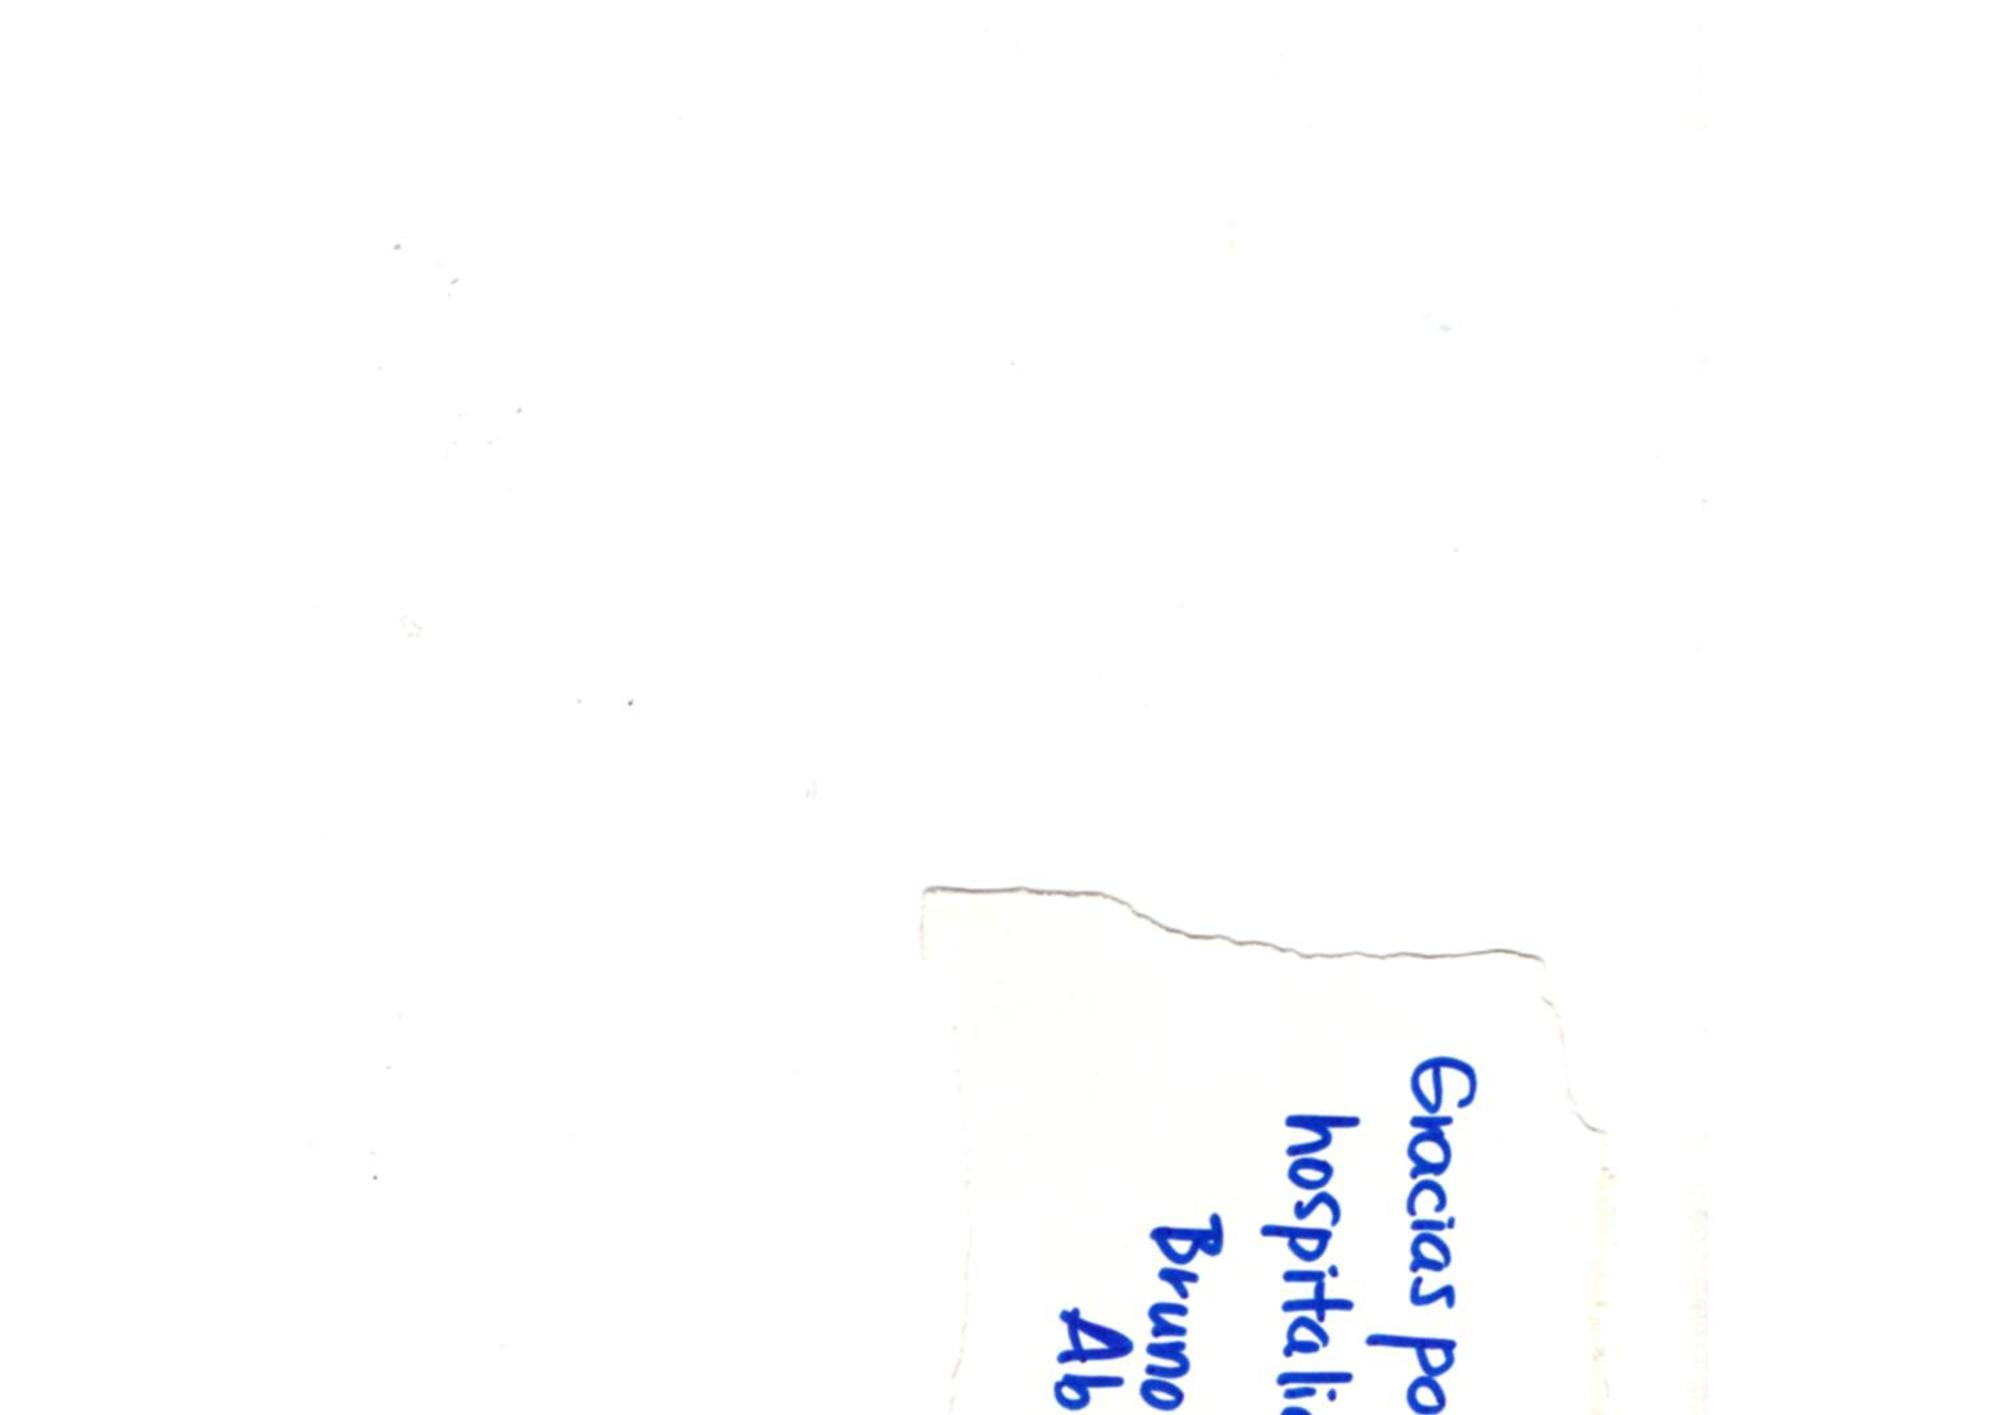 Gracias po
hospitali
Bruno
Ab